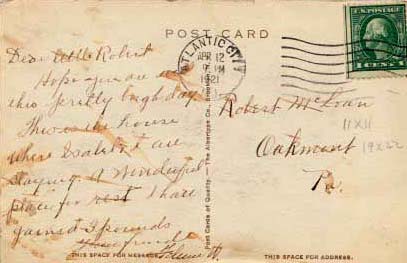 POST CARD
ATLANTIC CITY
APR 12
9 PM
1921
U.S. POSTAGE
1 CENT 1
Dear little Robert
Hope you are
this pretty bright day
This is the house
where Isabel & I are
staying. A wonderful
place for rest I have
gained 3 pounds
Your friend
Robert McLoan
Oakmont
Pa.
11x11
19x22
Post Cards of Quality. — The Albertype Co., Brooklyn
THIS SPACE FOR MESSAGE.
THIS SPACE FOR ADDRESS.